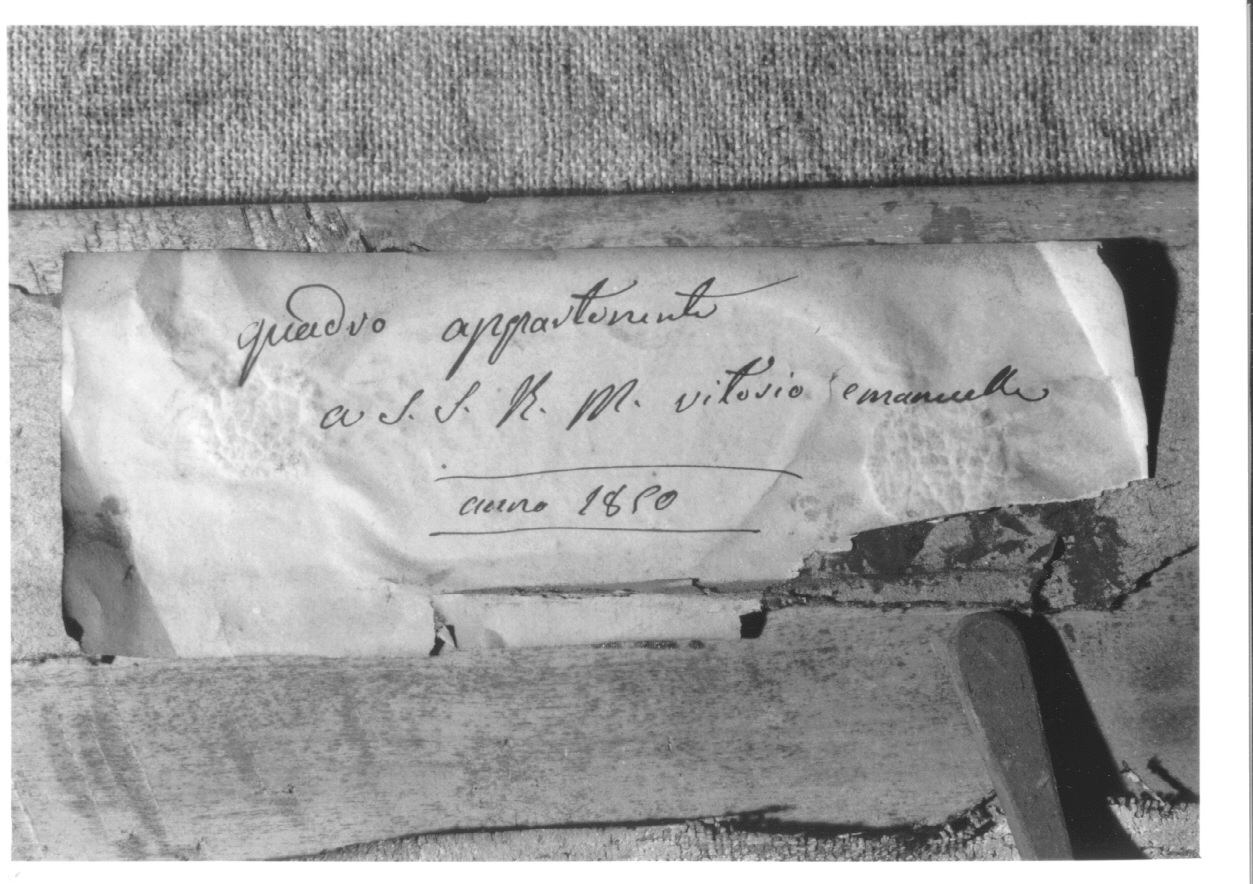 quadro appartenente
a S. S. R. M. vitorio emanuelle
anno 1850